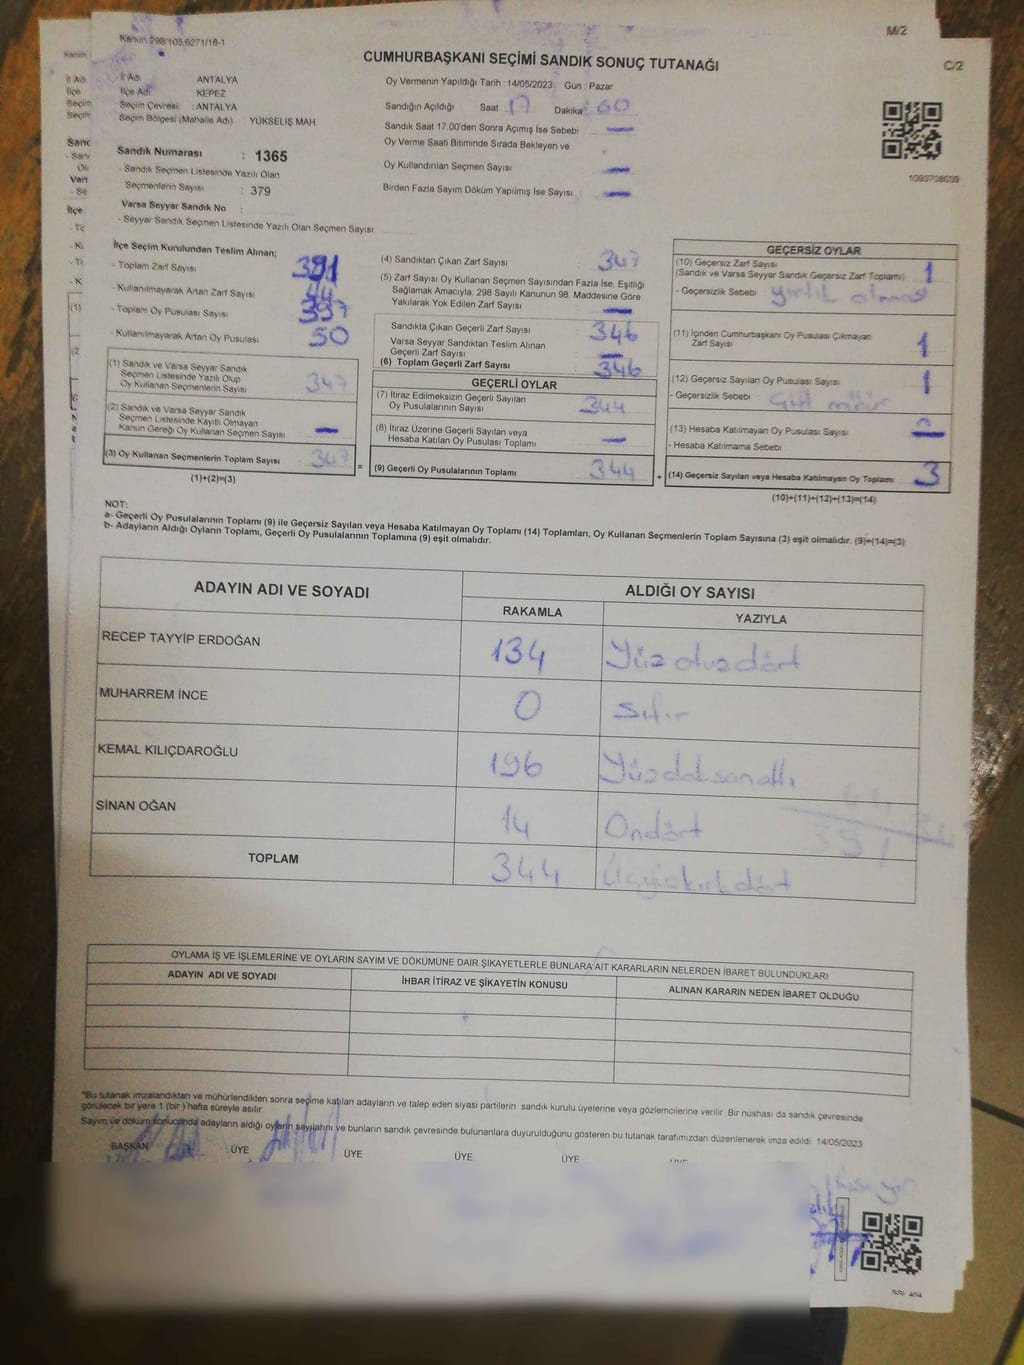 Kanun 298/105,6271/18-1
M/2
CUMHURBAŞKANI SEÇİMİ SANDIK SONUÇ TUTANAĞI
C/2
İl Adı ANTALYA
İlçe Adı KEPEZ
Seçim Çevresi : ANTALYA
Seçim Bölgesi (Mahalle Adı) YÜKSELİŞ MAH.
Oy Vermenin Yapıldığı Tarih : 14/05/2023 Gün : Pazar
Sandığın Açıldığı Saat 17 Dakika: 00
Sandık Saat 17.00'den Sonra Açımış İse Sebebi —
Oy Verme Saati Bitiminde Sırada Bekleyen ve
Oy Kullandırılan Seçmen Sayısı —
Birden Fazla Sayım Döküm Yapılmış İse Sayısı —
Sandık Numarası : 1365
- Sandık Seçmen Listesinde Yazılı Olan
Seçmenlerin Sayısı : 379
Varsa Seyyar Sandık No :
- Seyyar Sandık Seçmen Listesinde Yazılı Olan Seçmen Sayısı:
İlçe Seçim Kurulundan Teslim Alınan;
- Toplam Zarf Sayısı 391
- Kullanılmayarak Artan Zarf Sayısı 44
- Toplam Oy Pusulası Sayısı 397
- Kullanılmayarak Artan Oy Pusulası 50
(1) Sandık ve Varsa Seyyar Sandık
Seçmen Listesinde Yazılı Olup
Oy Kullanan Seçmenlerin Sayısı 347
(2) Sandık ve Varsa Seyyar Sandık
Seçmen Listesinde Kayıtlı Olmayan
Kanun Gereği Oy Kullanan Seçmen Sayısı —
(3) Oy Kullanan Seçmenlerin Toplam Sayısı 347
(1)+(2)=(3)
(4) Sandıktan Çıkan Zarf Sayısı 347
(5) Zarf Sayısı Oy Kullanan Seçmen Sayısından Fazla İse, Eşitliği
Sağlamak Amacıyla, 298 Sayılı Kanunun 98. Maddesine Göre
Yakılarak Yok Edilen Zarf Sayısı —
Sandıkta Çıkan Geçerli Zarf Sayısı 346
Varsa Seyyar Sandıktan Teslim Alınan
Geçerli Zarf Sayısı —
(6) Toplam Geçerli Zarf Sayısı 346
GEÇERLİ OYLAR
(7) İtiraz Edilmeksizin Geçerli Sayılan
Oy Pusulalarının Sayısı 344
(8) İtiraz Üzerine Geçerli Sayılan veya
Hesaba Katılan Oy Pusulası Toplamı —
= (9) Geçerli Oy Pusulalarının Toplamı 344
GEÇERSİZ OYLAR
(10) Geçersiz Zarf Sayısı
(Sandık ve Varsa Seyyar Sandık Geçersiz Zarf Toplamı) 1
- Geçersizlik Sebebi yırtık olması
(11) İçinden Cumhurbaşkanı Oy Pusulası Çıkmayan
Zarf Sayısı 1
(12) Geçersiz Sayılan Oy Pusulası Sayısı 1
- Geçersizlik Sebebi Çift mühür
(13) Hesaba Katılmayan Oy Pusulası Sayısı
- Hesaba Katılmama Sebebi
+ (14) Geçersiz Sayılan veya Hesaba Katılmayan Oy Toplamı 3
(10)+(11)+(12)+(13)=(14)
NOT:
a- Geçerli Oy Pusulalarının Toplamı (9) ile Geçersiz Sayılan veya Hesaba Katılmayan Oy Toplamı (14) Toplamları, Oy Kullanan Seçmenlerin Toplam Sayısına (3) eşit olmalıdır. (9)+(14)=(3)
b- Adayların Aldığı Oyların Toplamı, Geçerli Oy Pusulalarının Toplamına (9) eşit olmalıdır.
ADAYIN ADI VE SOYADI ALDIĞI OY SAYISI
RAKAMLA YAZIYLA
RECEP TAYYİP ERDOĞAN 134 Yüz otuz dört
MUHARREM İNCE 0 Sıfır
KEMAL KILIÇDAROĞLU 196 Yüzdoksanaltı
SİNAN OĞAN 14 Ondört
TOPLAM 344 Üçyüzkırkdört
OYLAMA İŞ VE İŞLEMLERİNE VE OYLARIN SAYIM VE DÖKÜMÜNE DAİR ŞİKAYETLERLE BUNLARA AİT KARARLARIN NELERDEN İBARET BULUNDUKLARI
ADAYIN ADI VE SOYADI İHBAR İTİRAZ VE ŞİKAYETİN KONUSU ALINAN KARARIN NEDEN İBARET OLDUĞU
*Bu tutanak imzalandıktan ve mühürlendikten sonra seçime katılan adayların ve talep eden siyasi partilerin sandık kurulu üyelerine veya gözlemcilerine verilir. Bir nüshası da sandık çevresinde
görülecek bir yere 1 (bir) hafta süreyle asılır.
Sayım ve döküm sonucunda adayların aldığı oyların sayılarını ve bunların sandık çevresinde bulunanlara duyurulduğunu gösteren bu tutanak tarafımızdan düzenlenerek imza edildi. 14/05/2023
BAŞKAN ÜYE ÜYE ÜYE ÜYE